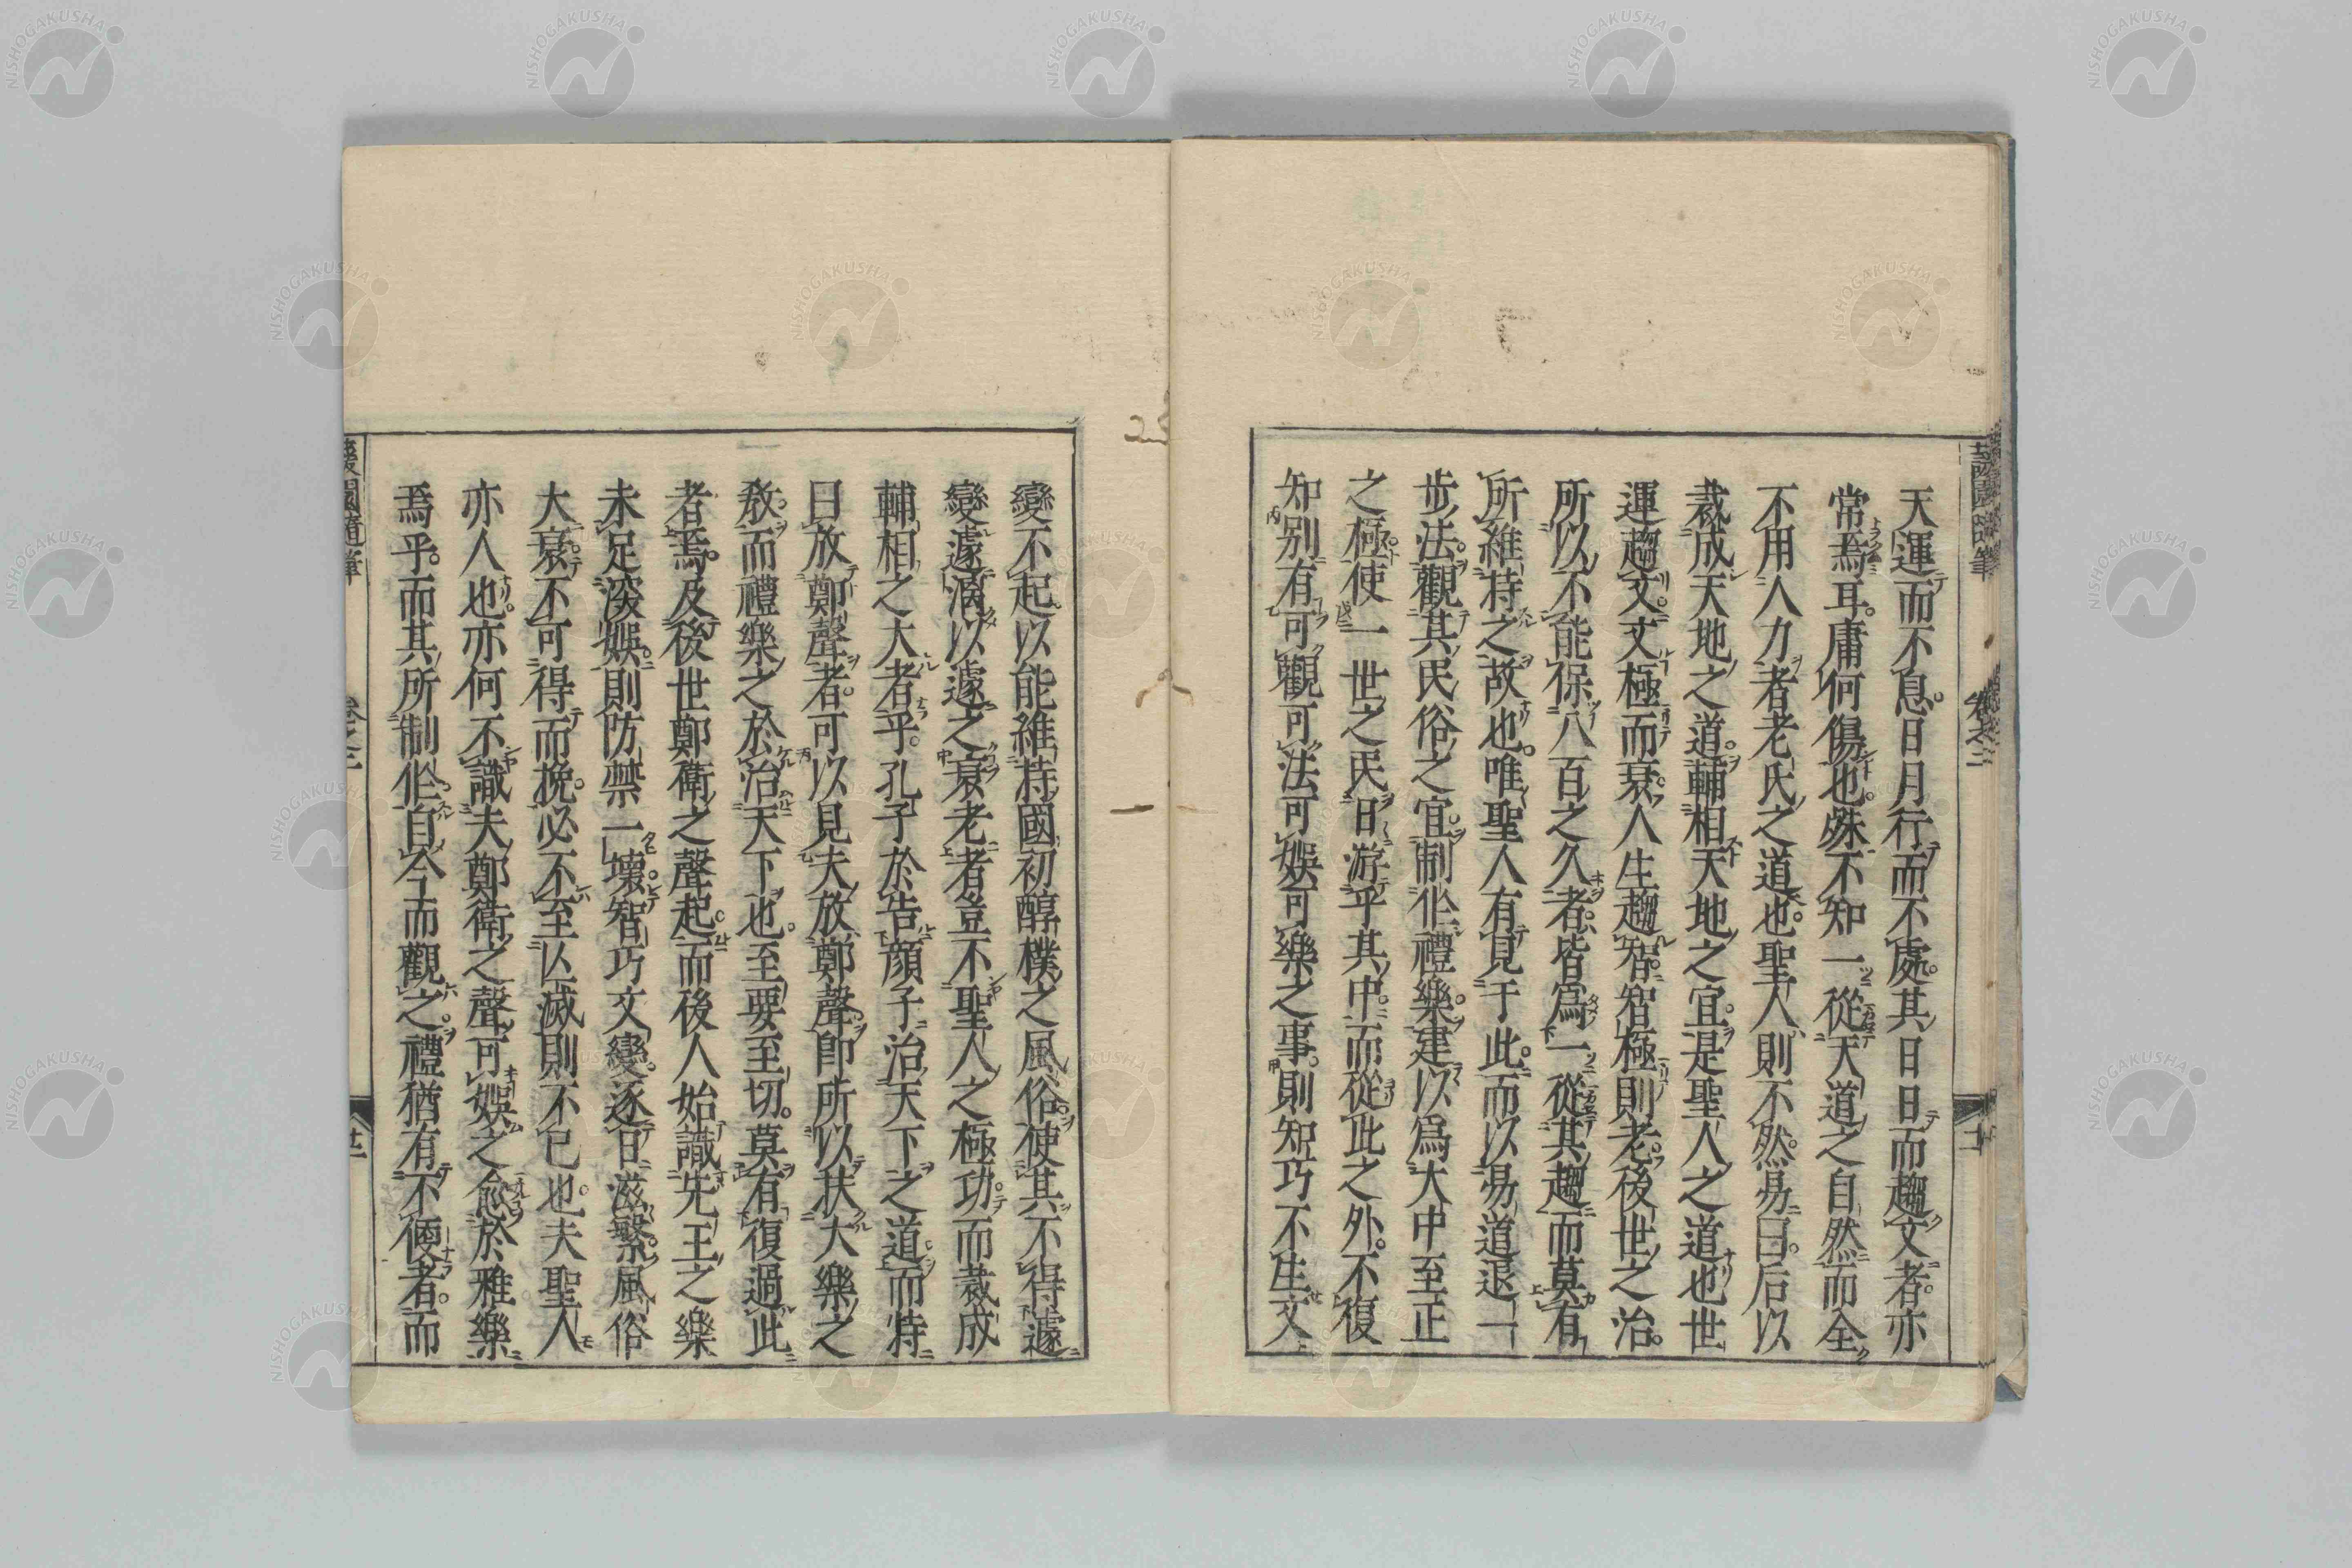 天運而不息。日月行而不處。其日日而趨文者。亦
常焉耳。庸何傷也。殊不知一從天道之自然而全
不用人力者老氏之道也。聖人則不然。易曰。后以
裁成天地之道。輔相天地之宜。是聖人之道也世
運趨文。文極而衰。人生趨智。智極則老。後世之治。
所以不能保八百之久者。皆爲一從其趨而莫有
所維持之故也。唯聖人有見于此。而以易道退一
步法。觀其民俗之宜。制作禮樂。建以爲大中至正
之極。使一世之民日游乎其中。而從此之外。不復
知別有可觀可法可娯可樂之事。則知巧不生文
變不起。以能維持國初醇樸之風俗。使其不得遽
變遽漓以遽之衰老者豈不聖人之極功。而裁成
輔相之大者乎。孔子於告顔子治天下之道而特
曰放鄭聲者。可以見夫放鄭聲即所以扶大樂之
教而禮樂之於治天下也。至要至切。莫有復過此
者焉。及後世鄭衛之聲起。而後人始識先王之樂
未足深娯。則防禁一壞。智巧文變。逐日滋繁。風俗
大衰。不可得而挽。必不至亾滅則不已也。夫聖人
亦人也。亦何不識夫鄭衛之聲可娯之愈於雅樂
焉乎。而其所制作。自今而觀之。禮猶有不便者。而
蘐園隨筆
卷之二
蘐園隨筆
卷之二